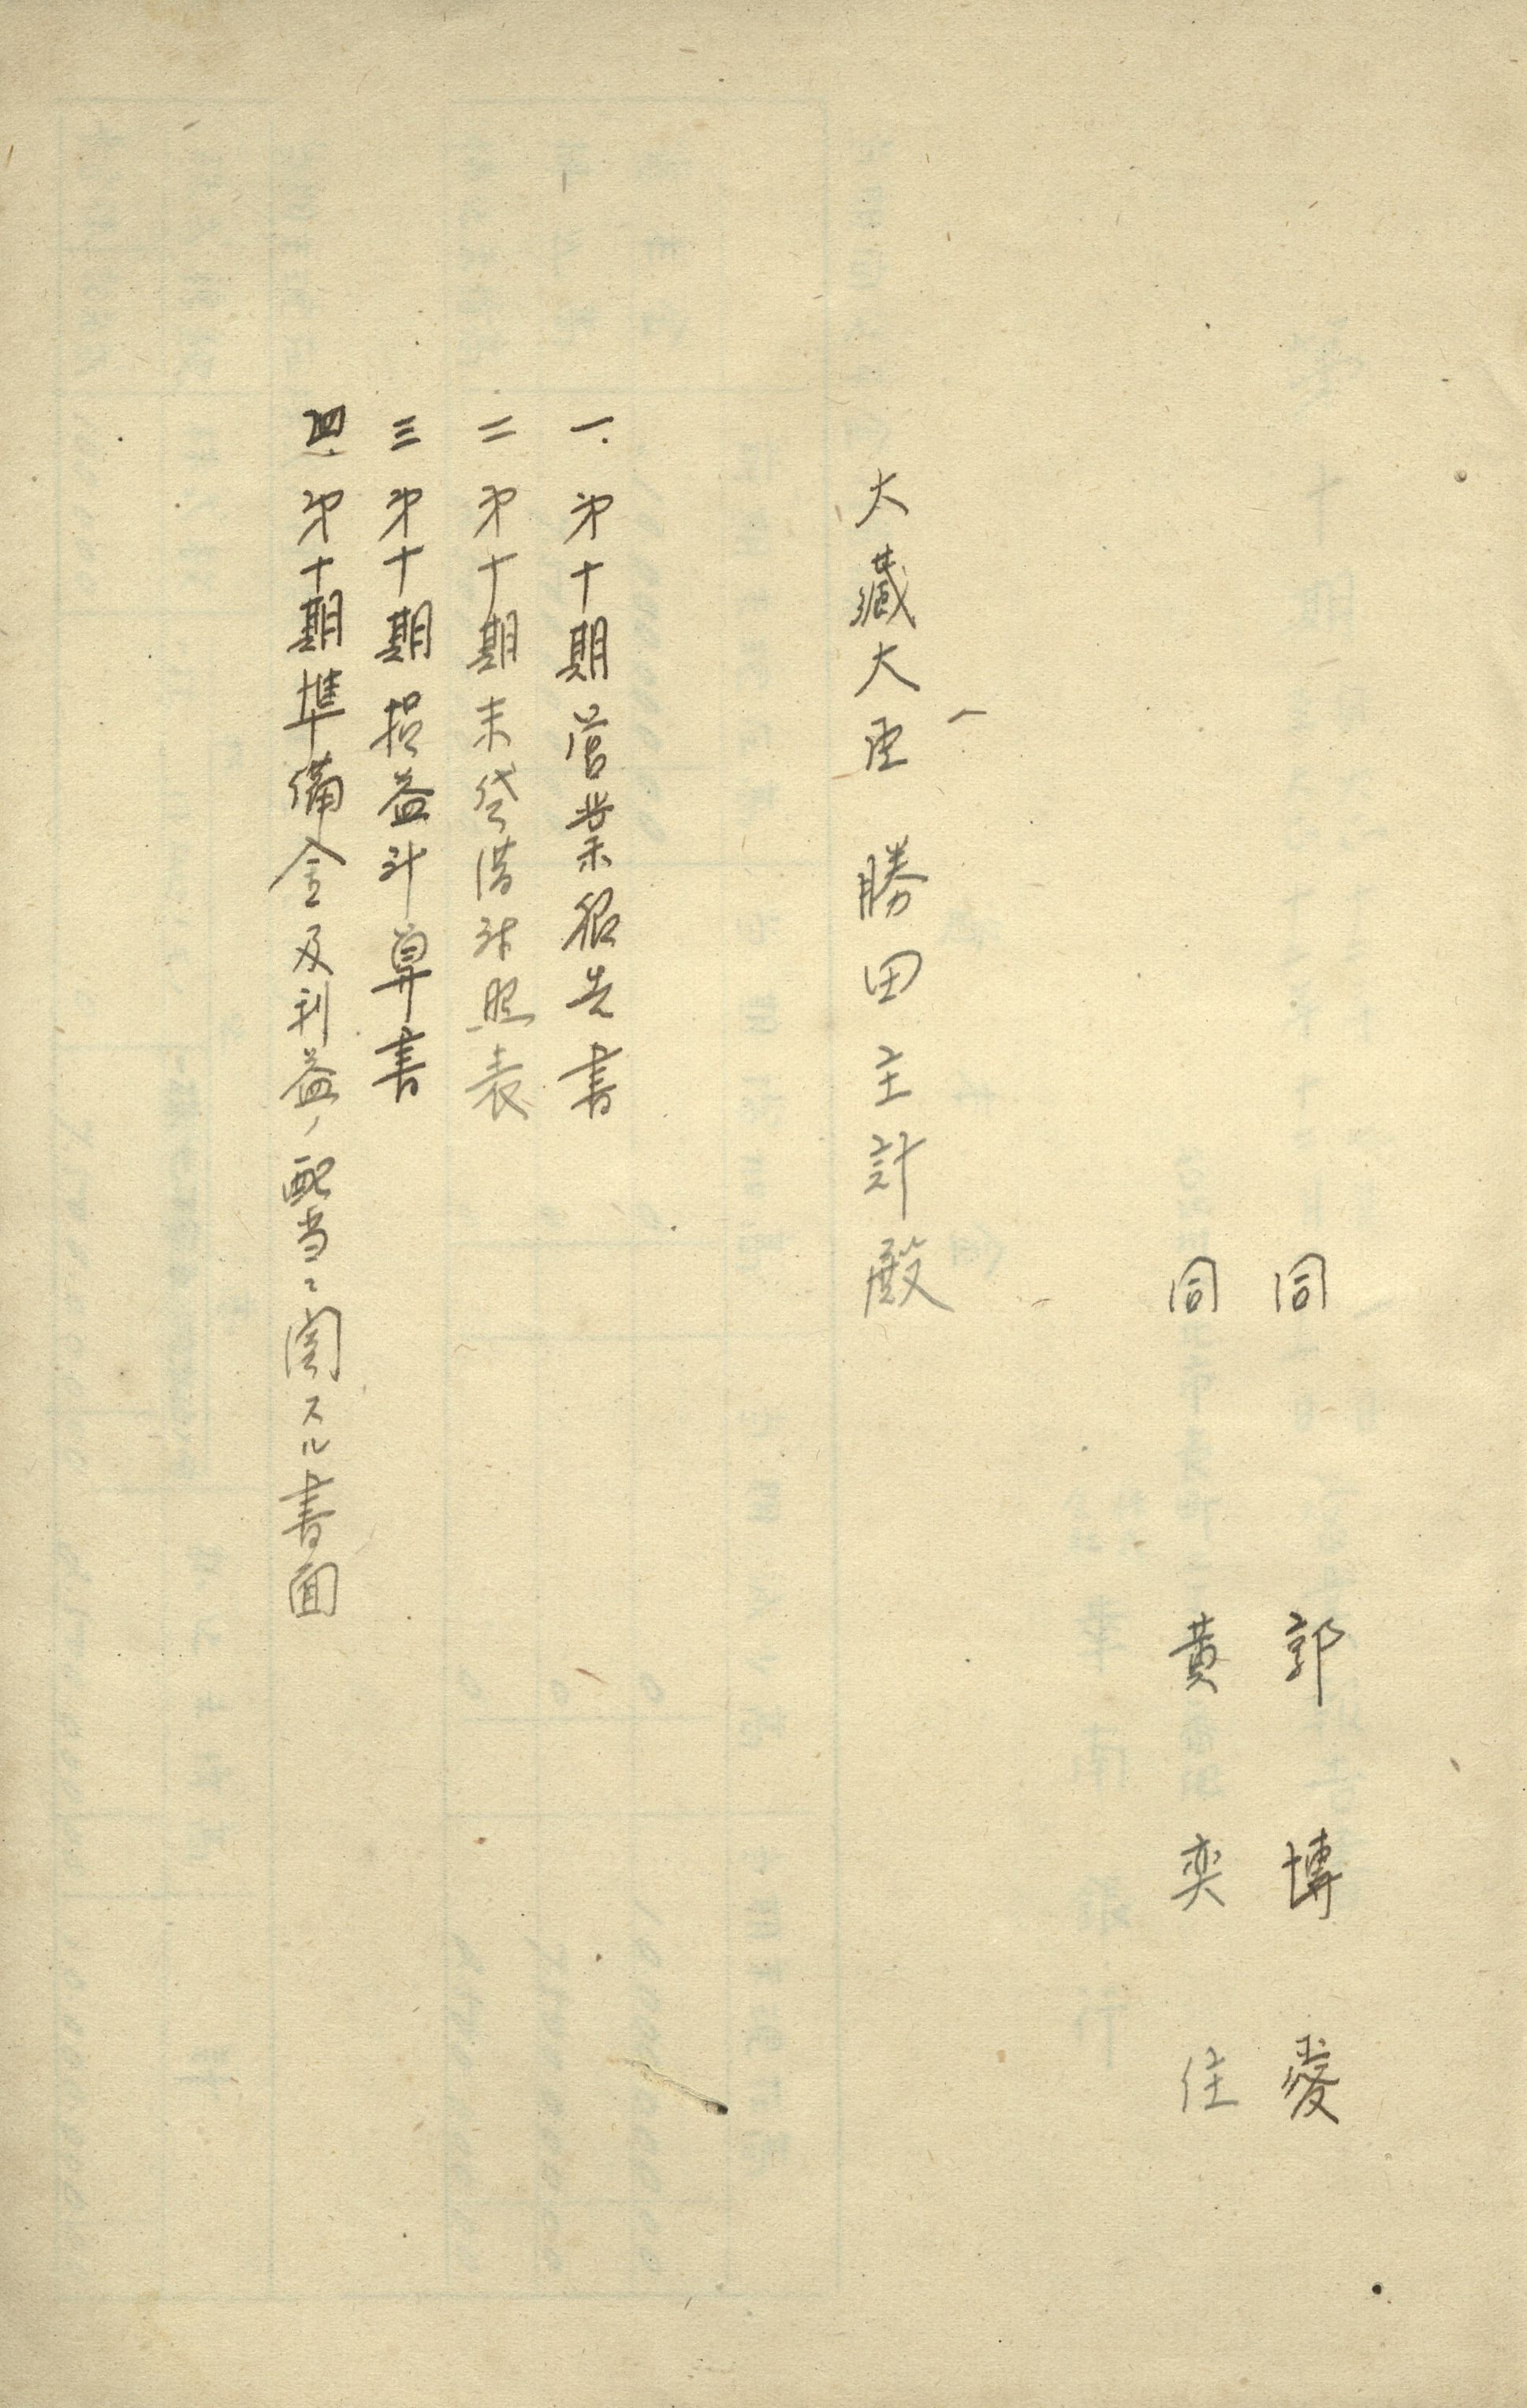 同 郭 博 愛
同 黄 奕 住
大藏大臣 勝田主計殿
一、第十期営業報告書
二 第十期末貸借対照表
三 第十期損益計算書
四、第十期準備金及利益ノ配当ニ関スル書面